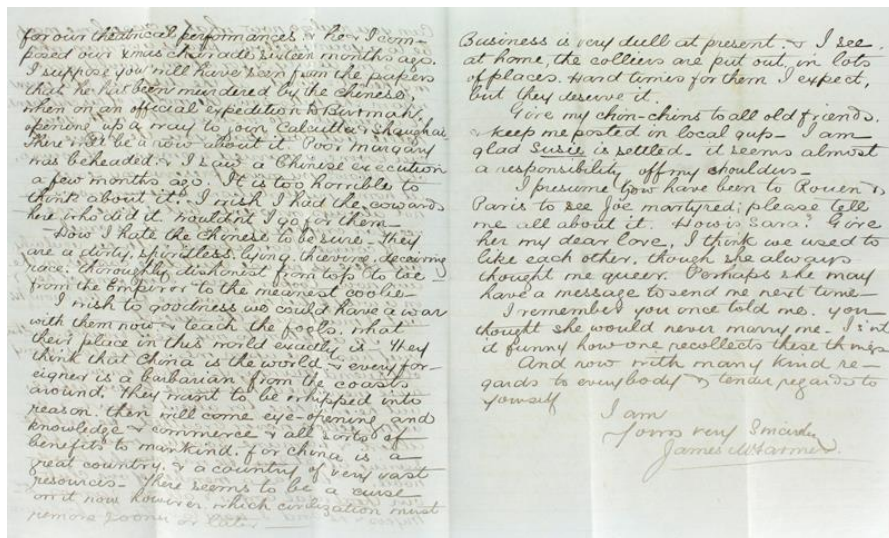 for our theatrical performances. & he & I com-
posed our xmas charade sixteen months ago.
I suppose you will have seen from the papers
that he has been murdered by the chinese,
when on an official expedition to Birmah,
opening up a way to join Calcutta & Shanghai.
There will be a row about it. Poor margary
was beheaded. & I saw a Chinese execution
a few months ago. It is too horrible to
think about it. I wish I had the cowards
here who did it. wouldn't I go for them—
How I hate the chinese to be sure— They
are a dirty, spiritless, lying, thieving, deceiving
race. thoroughly dishonest from top to toe
from the Emperor to the meanest coolie—
I wish to goodness we could have a war
with them now & teach the fools, what
their place in this world exactly is— They
think that China is the world, & every for-
eigner is a barbarian from the coasts
around. They want to be whipped into
reason. then will come eye-opening and
knowledge & commerce & all sorts of
benefits to mankind. for china is a
great country. & a country of very vast
resources— There seems to be a curse
on it now however, which civilization must
remove sooner or later
Business is very dull at present. & I see
at home, the colliers are put out in lots
of places. Hard times for them I expect,
but they deserve it.
Give my chin-chins to all old friends.
& keep me posted in local gup— I am
glad Susie is settled— it seems almost
a responsibility off my shoulders—
I presume you have been to Rouen &
Paris to see Joe martyred; please tell
me all about it. How is Sara? Give
her my dear love, I think we used to
like each other, though she always
thought me queer. Perhaps she may
have a message to send me next time—
I remember you once told me. you
thought she would never marry me— Isn't
it funny how one recollects these things
And now with many kind re-
gards to everybody & tender regards to
yourself
I am
Yours very Sincerely
James